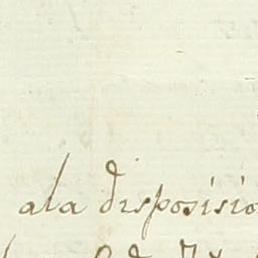 ala disposisio